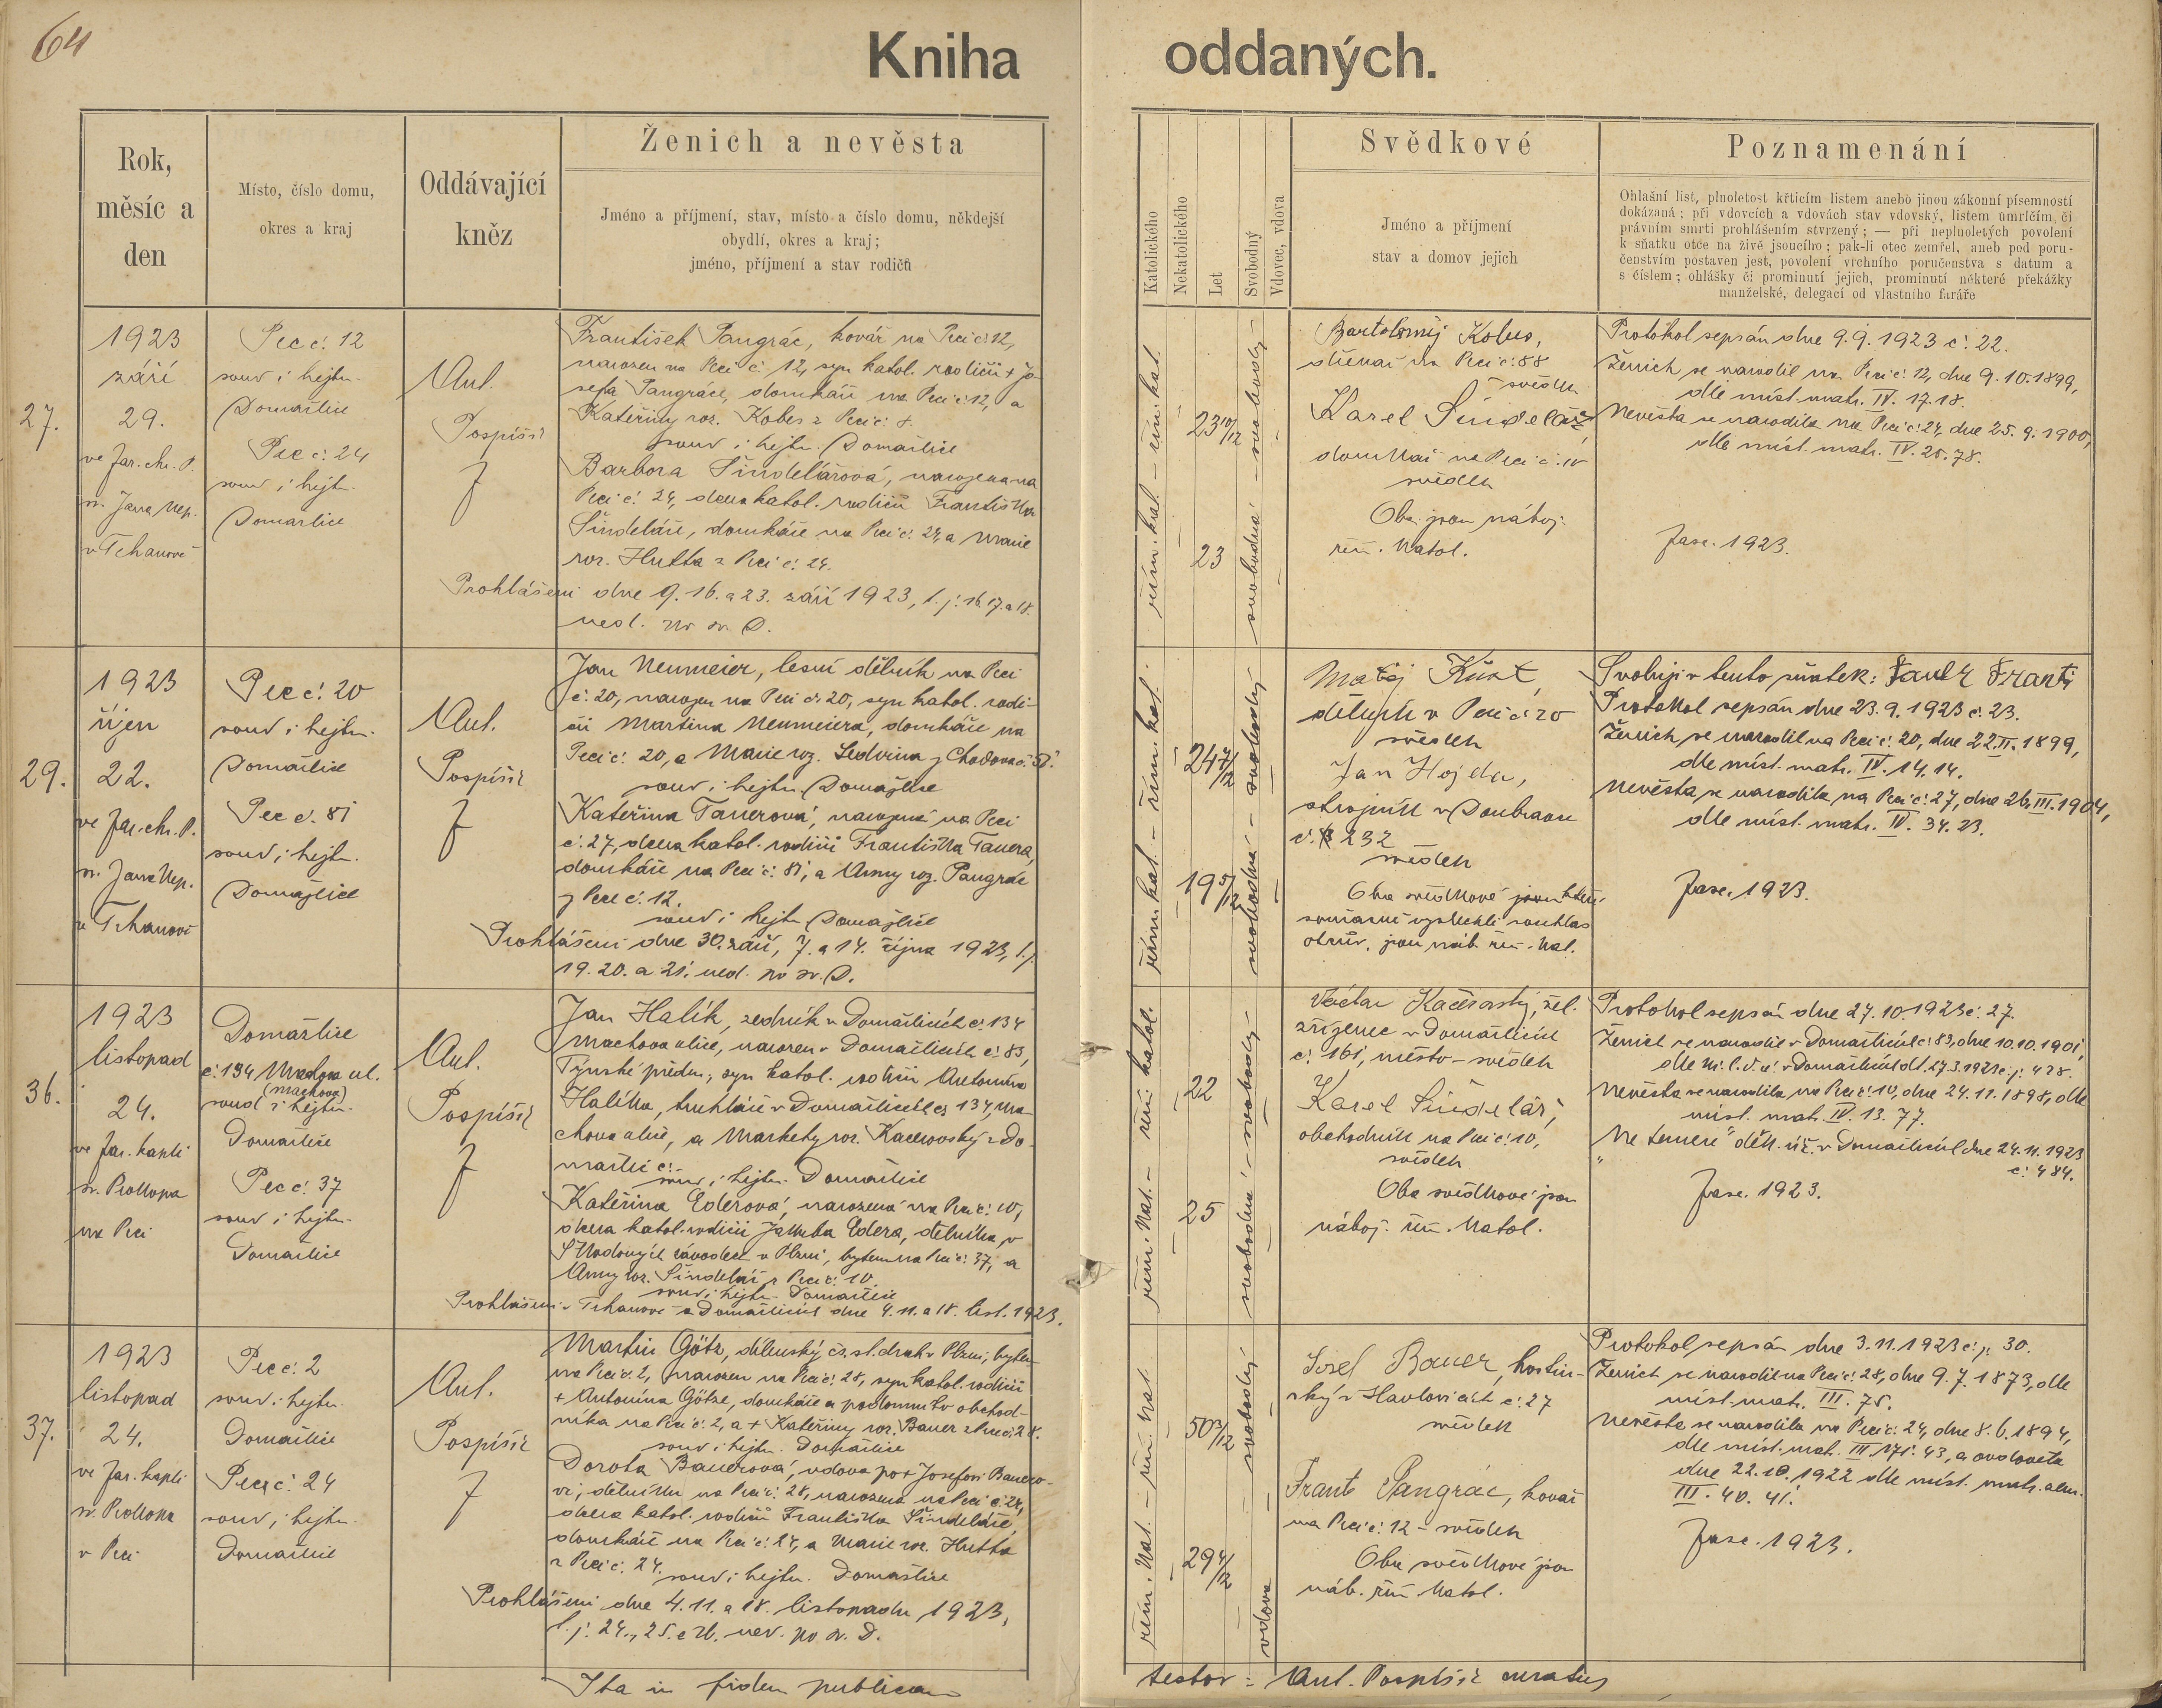 64
Kniha oddaných.
Rok,
měsíc a
den
Místo, číslo domu,
okres a kraj
Oddávající
kněz
Ženich a nevěsta
Jméno a příjmení, stav, místo a číslo domu, někdejší
obydlí, okres a kraj;
jméno, příjmení a stav rodičů
Katolického
Nekatolického
Let
Svobodný
Vdovec, vdova
Svědkové
Jméno a příjmení
stav a domov jejich
Poznamenání
Ohlašní list, plnoletost křticím listem anebo jinou zákonní písemností
dokázaná; při vdovcích a vdovách stav vdovský, listem úmrlčím, či
právním smrti prohlášením stvrzený; — při neplnoletých povolení
k sňatku otce na živě jsoucího; pak-li otec zemřel, aneb pod poru-
čenstvím postaven jest, povolení vrchního poručenstva s datum a
s číslem; ohlášky či prominutí jejich, prominutí některé překážky
manželské, delegací od vlastního faráře
27.
1923
září
29.
ve far. chr. P.
sv. Jana Nep.
v Trhanově
Pec č. 12
soud i hejtm.
Domažlice
Pec č. 24
soud i hejtm.
Domažlice
Ant.
Pospíšil
f
František Pangrác, kovář na Peci č. 12,
narozen na Peci č. 12, syn katol. rodičů + Jo-
sefa Pangráce, domkáře na Peci č. 12, a
Kateřiny roz. Kobes z Peci č. 8.
soud i hejtm. Domažlice
Barbora Šindelářová, narozena na
Peci č. 24, dcera katol. rodičů Františka
Šindeláře, domkáře na Peci č. 24, a Marie
roz. Hutta z Peci č. 24.
Prohlášeni dne 9. 16. a 23. září 1923, t. j. 16. 17. a 18.
ned. po sv. D.
řím. kat. – řím. kat.
23 10/12
23
svobodná – svobodný –
Bartoloměj Kobes,
na Peci č. 88
svědek
Karel Šindelář,
domkář na Peci č. 10
svědek
Oba jsou nábož.
řím. katol.
Protokol sepsán dne 9. 9. 1923 č. 22.
Ženich se narodil na Peci č. 12, dne 9. 10. 1899,
dle míst. matr. IV. 17. 18.
Nevěsta se narodila na Peci č. 24, dne 25. 9. 1900,
dle míst. matr. IV. 20. 78.
Fasc. 1923.
29.
1923
říjen
22.
ve far. chr. P.
sv. Jana Nep.
v Trhanově
Pec č. 20
soud i hejtm.
Domažlice
Pec č. 81
soud i hejtm.
Domažlice
Ant.
Pospíšil
f
Jan Neumeier, lesní dělník na Peci
č. 20, narozen na Peci č. 20, syn katol. rodi-
čů Martina Neumeiera, domkáře na
Peci č. 20, a Marie roz. Sedvina z Chodova č.
soud i hejtm. Domažlice
Kateřina Tauerová, narozená na Peci
č. 27, dcera katol. rodičů Františka Tauera,
domkáře na Peci č. 81, a Anny roz. Pangrác
z Pece č. 12.
soud i hejtm. Domažlice
Prohlášeni dne 30. září, 7. a 14. října 1923, t. j.
19. 20. a 21. ned. po sv. D.
řím. kat. – řím. kat.
24 7/12
19 5/12
svobodná – svobodný
Matěj
dělník v Peci č. 20
svědek
Jan Hojda,
strojník v Doubravě
č. 232
svědek
Oba svědkové
současně vyslechli souhlas
otcův, jsou náb. řím. kat.
Svoluji v tento sňatek: Tauer Frant.
Protokol sepsán dne 23. 9. 1923 č. 23.
Ženich se narodil na Peci č. 20, dne 22. II. 1899,
dle míst. matr. IV. 14. 14.
Nevěsta se narodila na Peci č. 27, dne 26. III. 1904,
dle míst. matr. IV. 34. 23.
Fasc. 1923.
36.
1923
listopad
24.
ve far. kapli
sv. Prokopa
na Peci
Domažlice
č. 134 ul.
(Machova)
soud i hejtm.
Domažlice
Pec č. 37
soud i hejtm.
Domažlice
Ant.
Pospíšil
f
Jan Halík, zedník v Domažlicích č. 134
Machova ulice, narozen v Domažlicích č. 83,
Týnské předm., syn katol. rodičů Antonína
Halíka, truhláře v Domažlicích č. 134, Ma-
chova ulice, a Markety roz. Kacerovský z Do-
mažlic č. –
soud i hejtm. Domažlice
Kateřina Ederová, narozená na Peci č. 10,
dcera katol. rodičů Jakuba Edera, dělníka v
Škodových závodech v Plzni, bytem na Peci č. 37, a
Anny roz. Šindelář z Peci č. 10.
soud i hejtm. Domažlice
Prohlášeni v Trhanově a Domažlicích dne 4. 11. a 18. list. 1923.
řím. kat. – řím. katol.
22
25
svobodná – svobodný –
Václav Kacerovský, žel.
zřízenec v Domažlicích
č. 161, město – svědek
Karel Šindelář,
obchodník na Peci č. 10,
svědek
Oba svědkové jsou
nábož. řím. katol.
Protokol sepsán dne 27. 10. 1923 č. 27.
Ženich se narodil v Domažlicích č. 83, dne 10. 10. 1901,
dle v Domažlicích dt. 27. 3. 1923 č. j. 428.
Nevěsta se narodila na Peci č. 10, dne 24. 11. 1898, dle
míst. mat. IV. 13. 77.
„Ne temere“ děk. úř. v Domažlicích dne 24. 11. 1923
č. 484.
Fasc. 1923.
37.
1923
listopad
24.
ve far. kapli
sv. Prokopa
v Peci
Pec č. 2
soud i hejtm.
Domažlice
Pec č. 24
soud i hejtm.
Domažlice
Ant.
Pospíšil
f
Martin Götz, dílenský čs. st. drah v Plzni, bytem
na Peci č. 2, narozen na Peci č. 28, syn katol. rodičů
+ Antonína Götze, domkáře a podomního obchod-
níka na Peci č. 2, a + Kateřiny roz. Bauer z Peci č. 28.
soud i hejtm. Domažlice
Dorota Bauerová, vdova po + Josefovi Bauero-
vi, dělníku na Peci č. 28, narozena na Peci č. 24,
dcera katol. rodičů Františka Šindeláře,
domkáře na Peci č. 24, a Marie roz. Hutta
z Peci č. 24.
soud i hejtm. Domažlice
Prohlášeni dne 4. 11. a 18. listopadu 1923,
t. j. 24., 25. a 26. ned. po sv. D.
řím. kat. – řím. kat.
50 3/12
29 4/12
svobodný
vdova
Josef Bauer, hostin-
ský v Havlovicích č. 27
svědek
Frant. Pangrác, kovář
na Peci č. 12 – svědek
Oba svědkové jsou
náb. řím. katol.
Protokol sepsán dne 3. 11. 1923 č. j. 30.
Ženich se narodil na Peci č. 28, dne 9. 7. 1873, dle
míst. matr. III. 75.
Nevěsta se narodila na Peci č. 24, dne 8. 6. 1894,
dle míst. mat. III. 171. 43, a ovdověla
dne 22. 10. 1922 dle míst. matr. zem.
III. 40. 41.
Fasc. 1923.
Ita in fidem publicam
testor: Ant. Pospíšil curatus